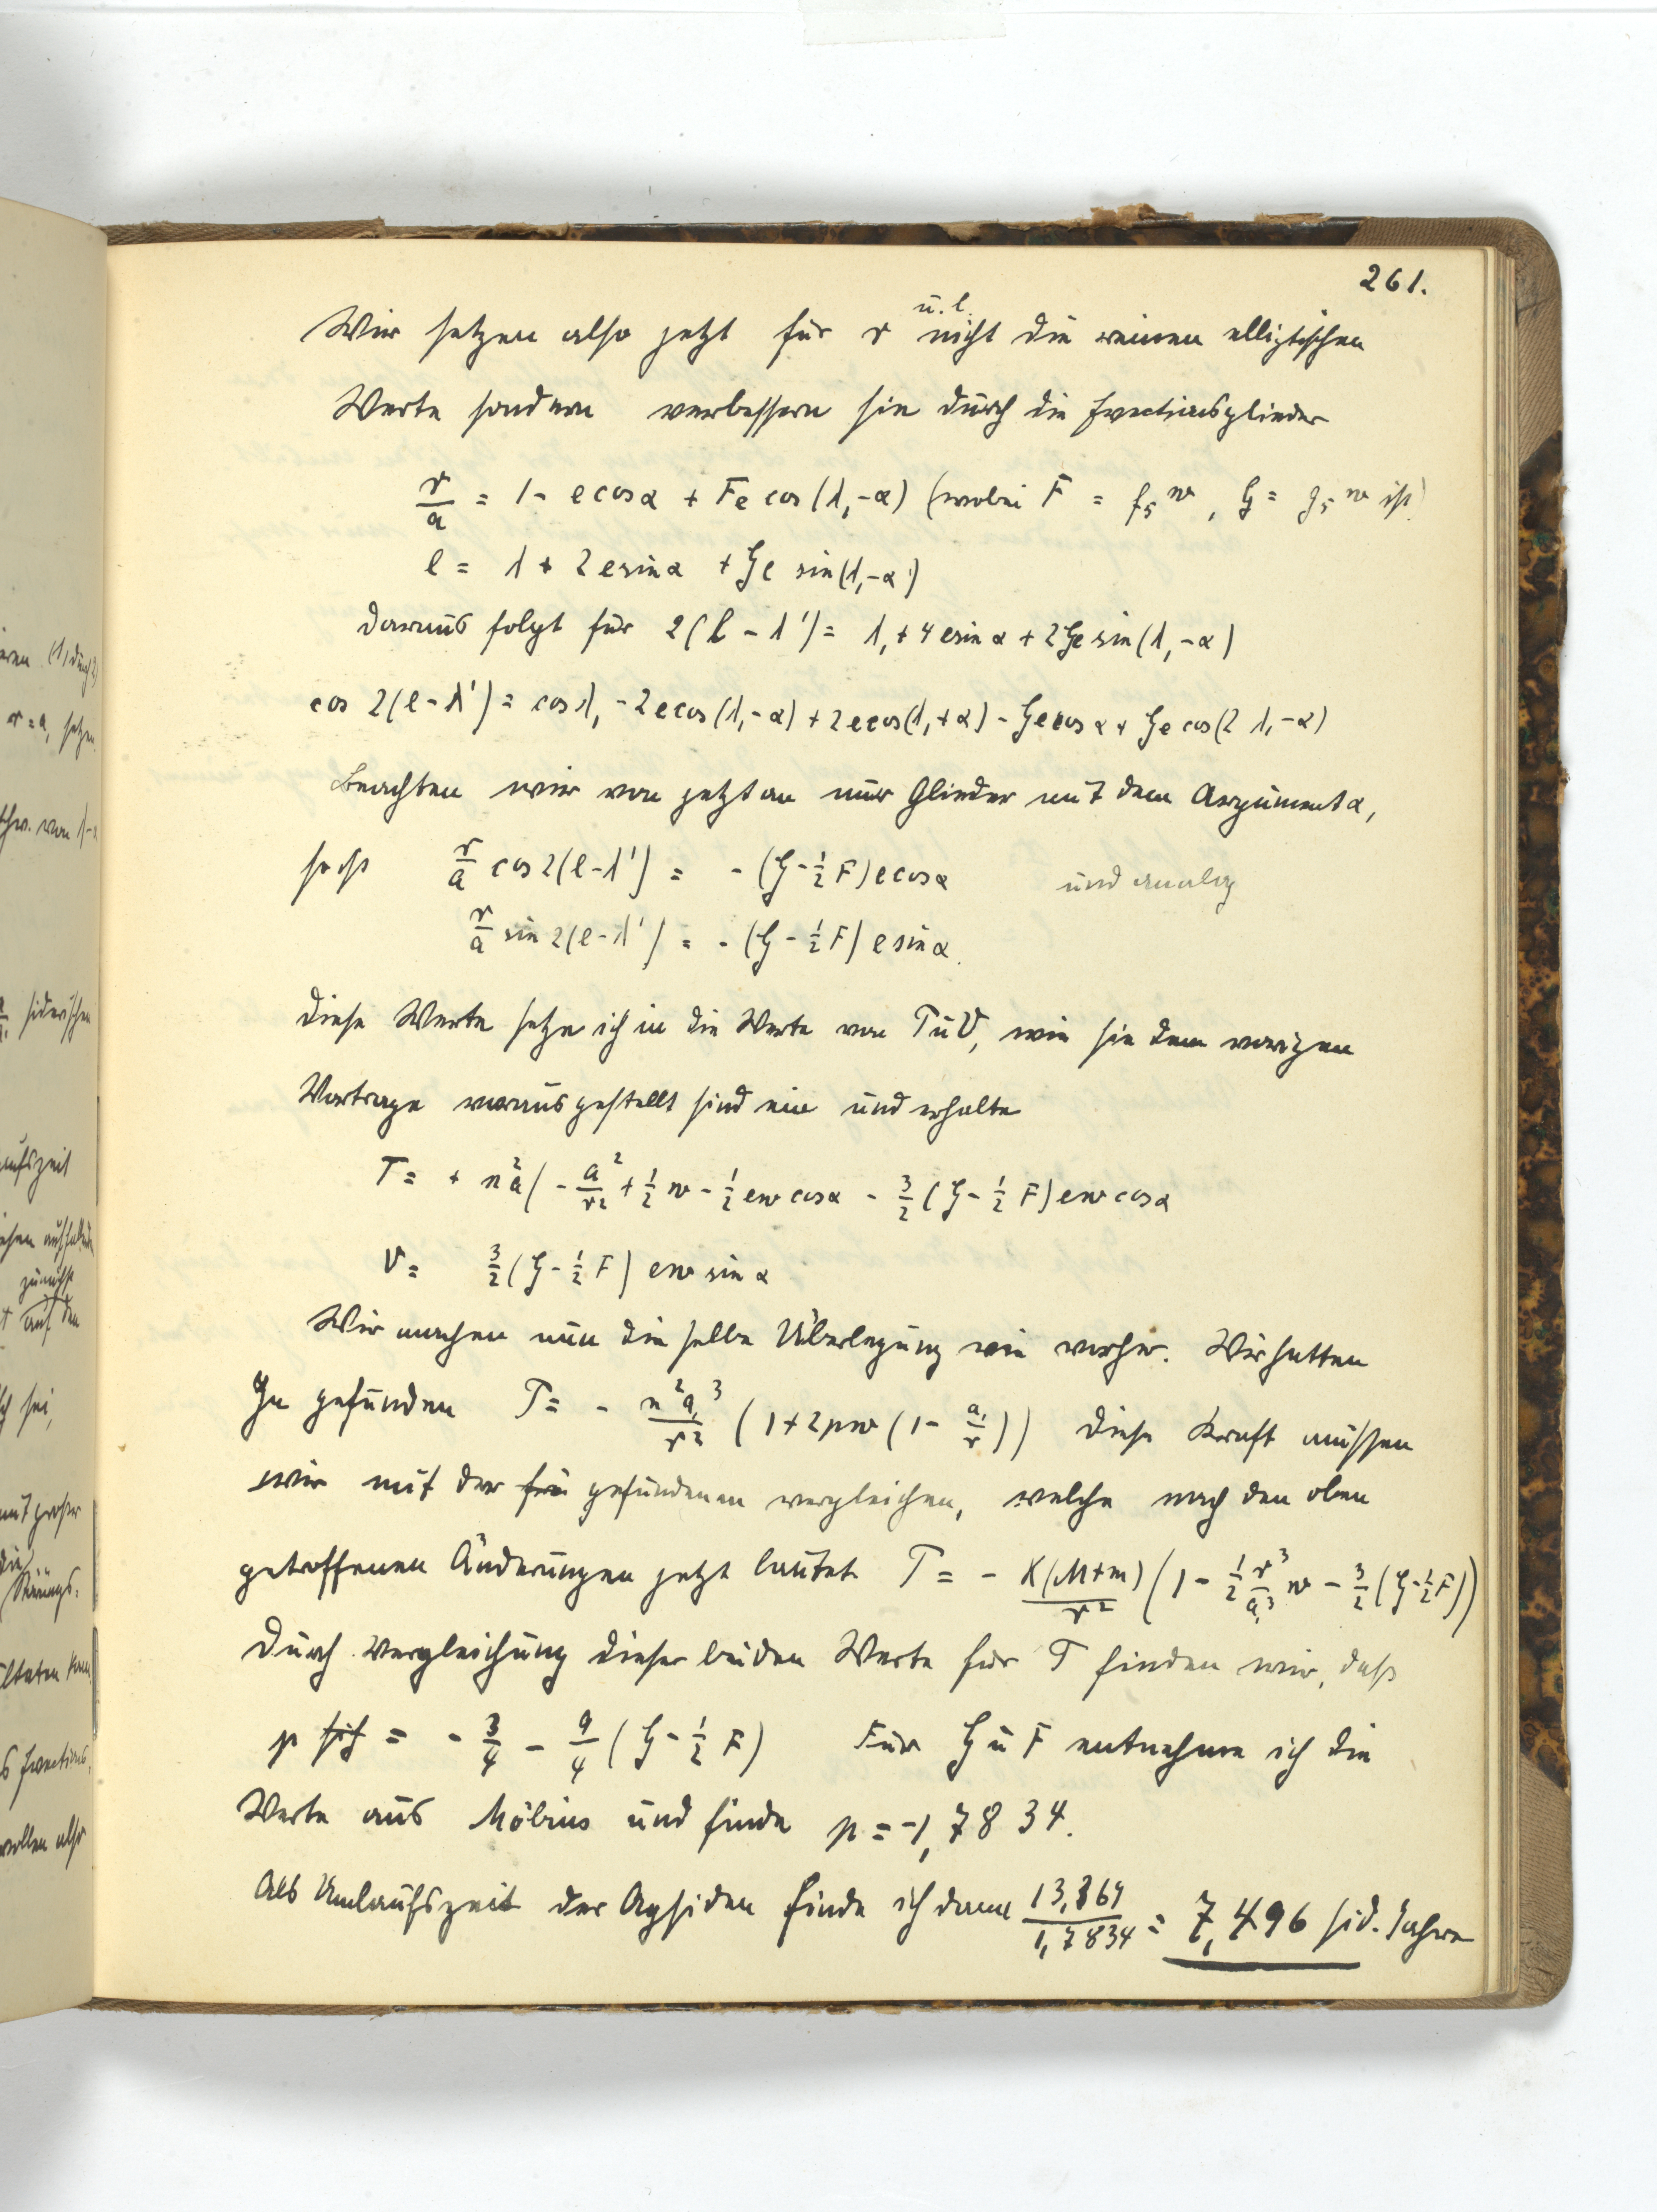 261.
Wir setzen also jetzt für r u. l. nicht die reinen elliptischen
Werte sondern verbessern sie durch die Evectionsglieder
r/a = 1 - e cos α + Fe cos (λ, - α) (wobei F = f₅ w, G = g₅ w ist)
l = λ + 2 e sin α + Ge sin (λ, - α)
daraus folgt für 2(l - λ') = λ, + 4 e sin α + 2 Ge sin (λ, - α)
cos 2(l - λ') = cos λ, - 2 e cos (λ, - α) + 2 e cos (λ, + α) - Ge cos α + Ge cos (2 λ, - α)
Beachten wir von jetzt an nur Glieder mit dem Argument α,
so ist r/a cos 2(l - λ') = - (G - 1/2 F) e cos α und analog
r/a sin 2(l - λ') = - (G - 1/2 F) e sin α.
Diese Werte setze ich in die Werte von T u V, wie sie dem vorigen
Vortrage vorausgestellt sind ein und erhalte
T = + n² a ( - a²/r² + 1/2 w - 1/2 e w cos α - 3/2 (G - 1/2 F) e w cos α
V = 3/2 (G - 1/2 F) e w sin α
Wir machen nun die selbe Überlegung wie vorher. Wir hatten
Ja gefunden T = - n² a,³/r² (1 + 2 p w (1 - a,/r)) diese Kraft müssen
wir mit der frü gefundenen vergleichen, welche nach den oben
getroffenen Änderungen jetzt lautet T = - K(M+m)/r² (1 - 1/2 r³/a,³ w - 3/2 (G - 1/2 F))
Durch Vergleichung dieser beiden Werte für T finden wir, daß
p sich = - 3/4 - 9/4 (G - 1/2 F) Für G u F entnehme ich die
Werte aus Möbius und finde p = - 1,7834.
Als Umlaufszeit der Apsiden finde ich dann 13,369/1,7834 = 7,496 sid. Jahre